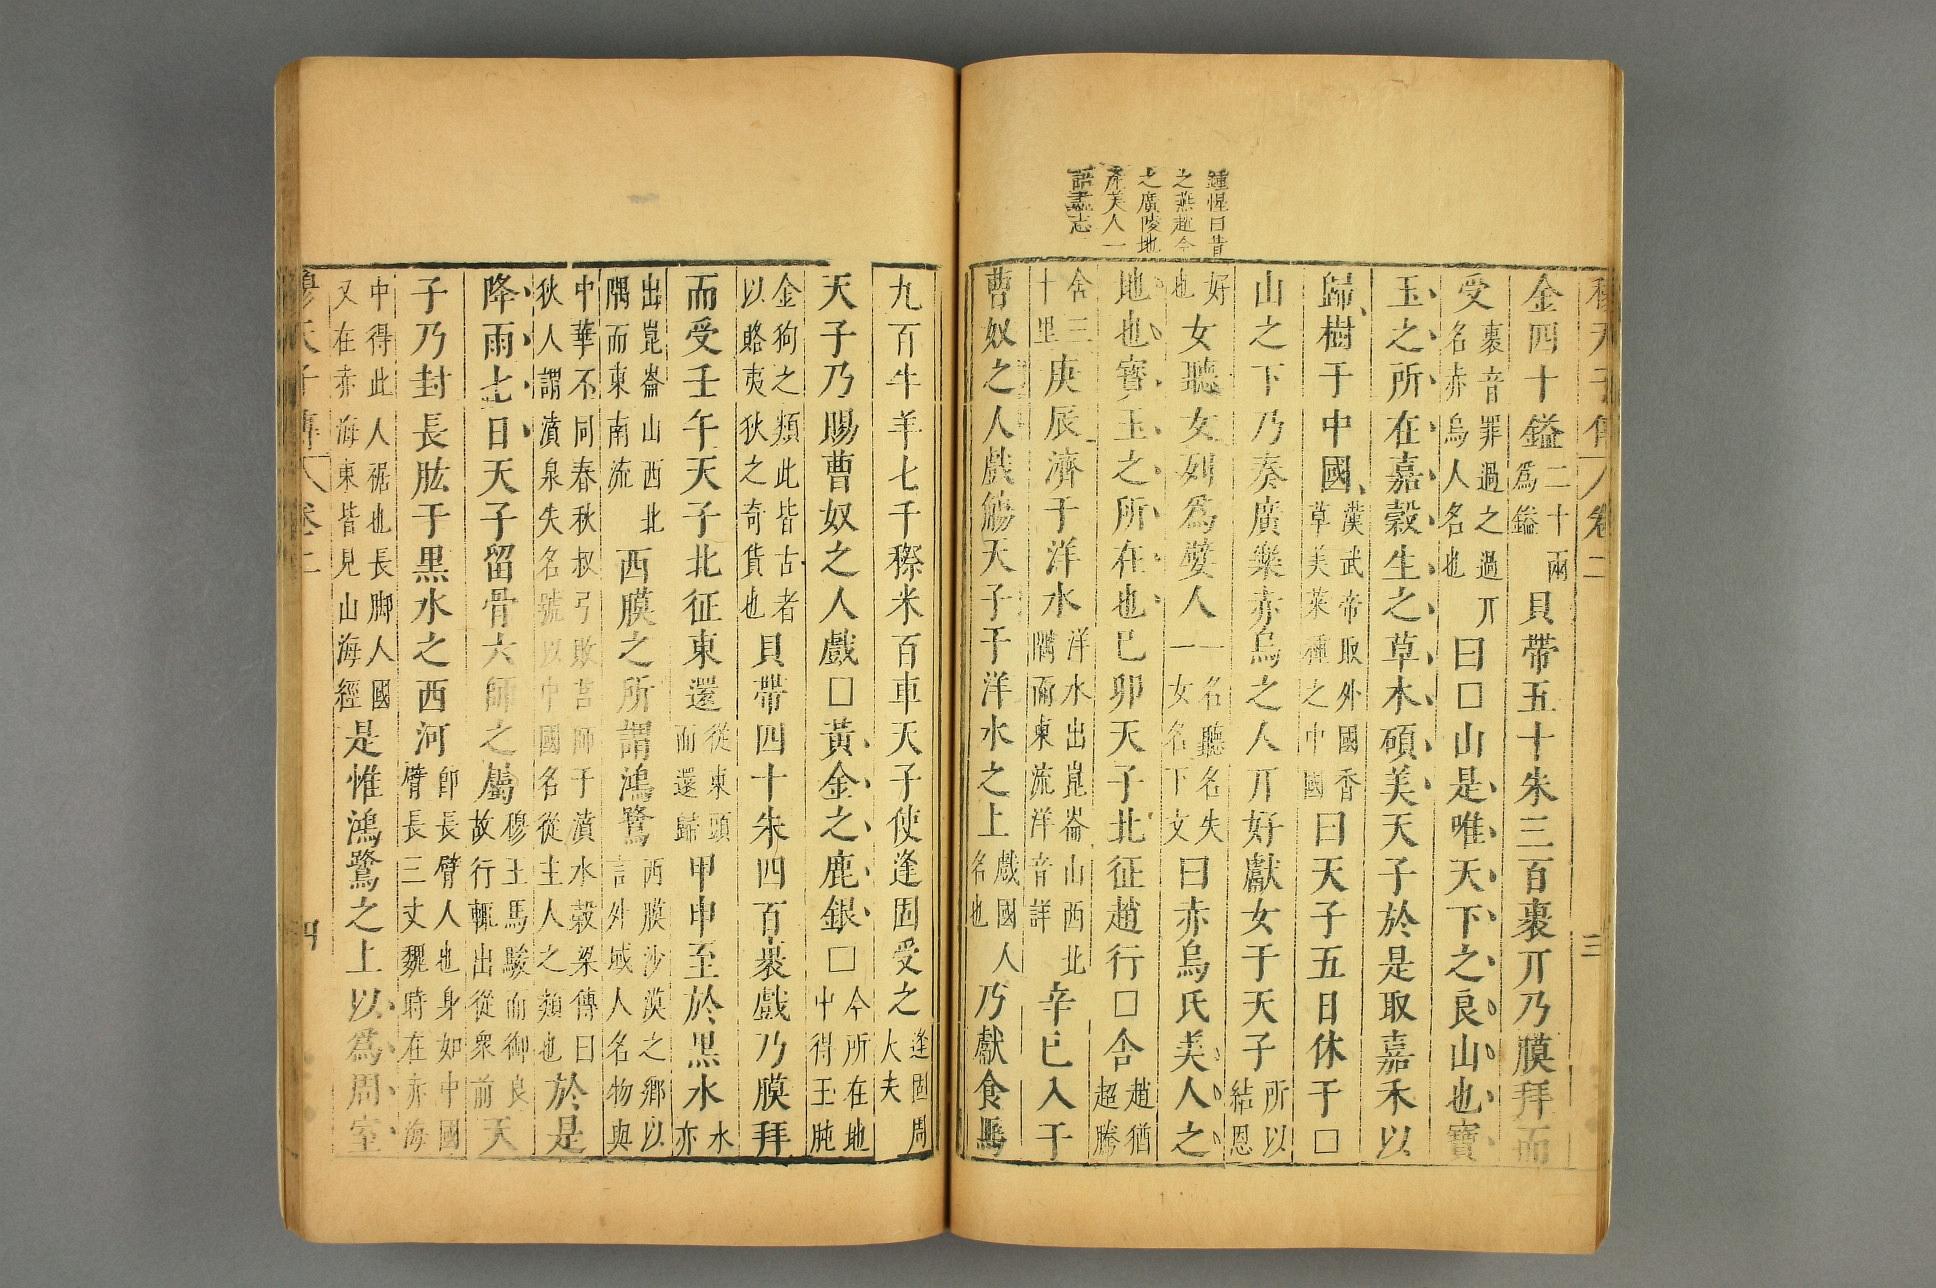 鍾惺曰昔
之燕趙今
之廣陵地
産美人一
語盡志
穆天子傳 卷二 三
金四十鎰二十兩爲鎰貝帶五十朱三百裹丌乃膜拜而
受裹音罪過之過丌名赤烏人名也曰□山是唯天下之良山也寶
玉之所在嘉穀生之草木碩美天子於是取嘉禾以
歸樹于中國漢武帝取外國香草美菜種之中國曰天子五日休于□
山之下乃奏廣樂赤烏之人丌好獻女于天子所以結恩
好也女聽女列爲嬖人一名聽名失一女名下文曰赤烏氏美人之
地也寶玉之所在也已卯天子北征趙行□舍趙猶超騰
舍三十里庚辰濟于洋水洋水出崑崙山西北隅而東流洋音詳辛已入于
曹奴之人戲觴天子于洋水之上戲國人名也乃獻食馬
九百牛羊七千穄米百車天子使逢固受之逢固周大夫
天子乃賜曹奴之人戲□黃金之鹿銀□今所在地中得玉肫
金狗之類此皆古者以賂夷狄之奇貨也貝帶四十朱四百裹戲乃膜拜
而受壬午天子北征東還從東頭而還歸甲申至於黑水水亦
出崑崙山西北隅而東南流西膜之所謂鴻鷺西膜沙漠之鄉以言外域人名物與
中華不同春秋叔弓敗莒師于濆水穀梁傳曰狄人謂濆泉失名號以中國名從主人之類也於是
降雨七日天子留骨六師之屬穆王馬駿而御良故行輒出從衆前天
子乃封長肱于黑水之西河卽長臂人也身如中國臂長三丈魏時在赤海
中得此人裾也長脚人國又在赤海東皆見山海經是惟鴻鷺之上以爲周室
穆天子傳 卷二 四